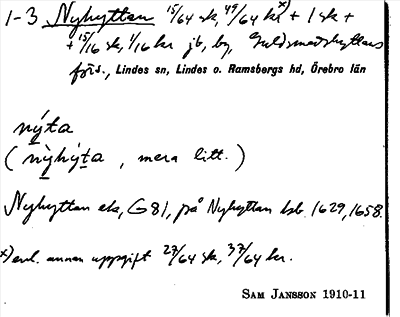 1-3 Nyhyttan 15/64 sk, 49/64 kr x) + 1 sk +
+ 15/16 sk, 1/16 kr jb, by, Guldsmedshyttans
förs., Lindes sn, Lindes o. Ramsbergs hd, Örebro län
nýta
(nỳhỳta, mera litt.)
Nyhyttan ek, G 81, på Nyhyttan Jsb. 1629, 1658.
x) enl. annan uppgift 27/64 sk, 37/64 kr.
SAM JANSSON 1910-11